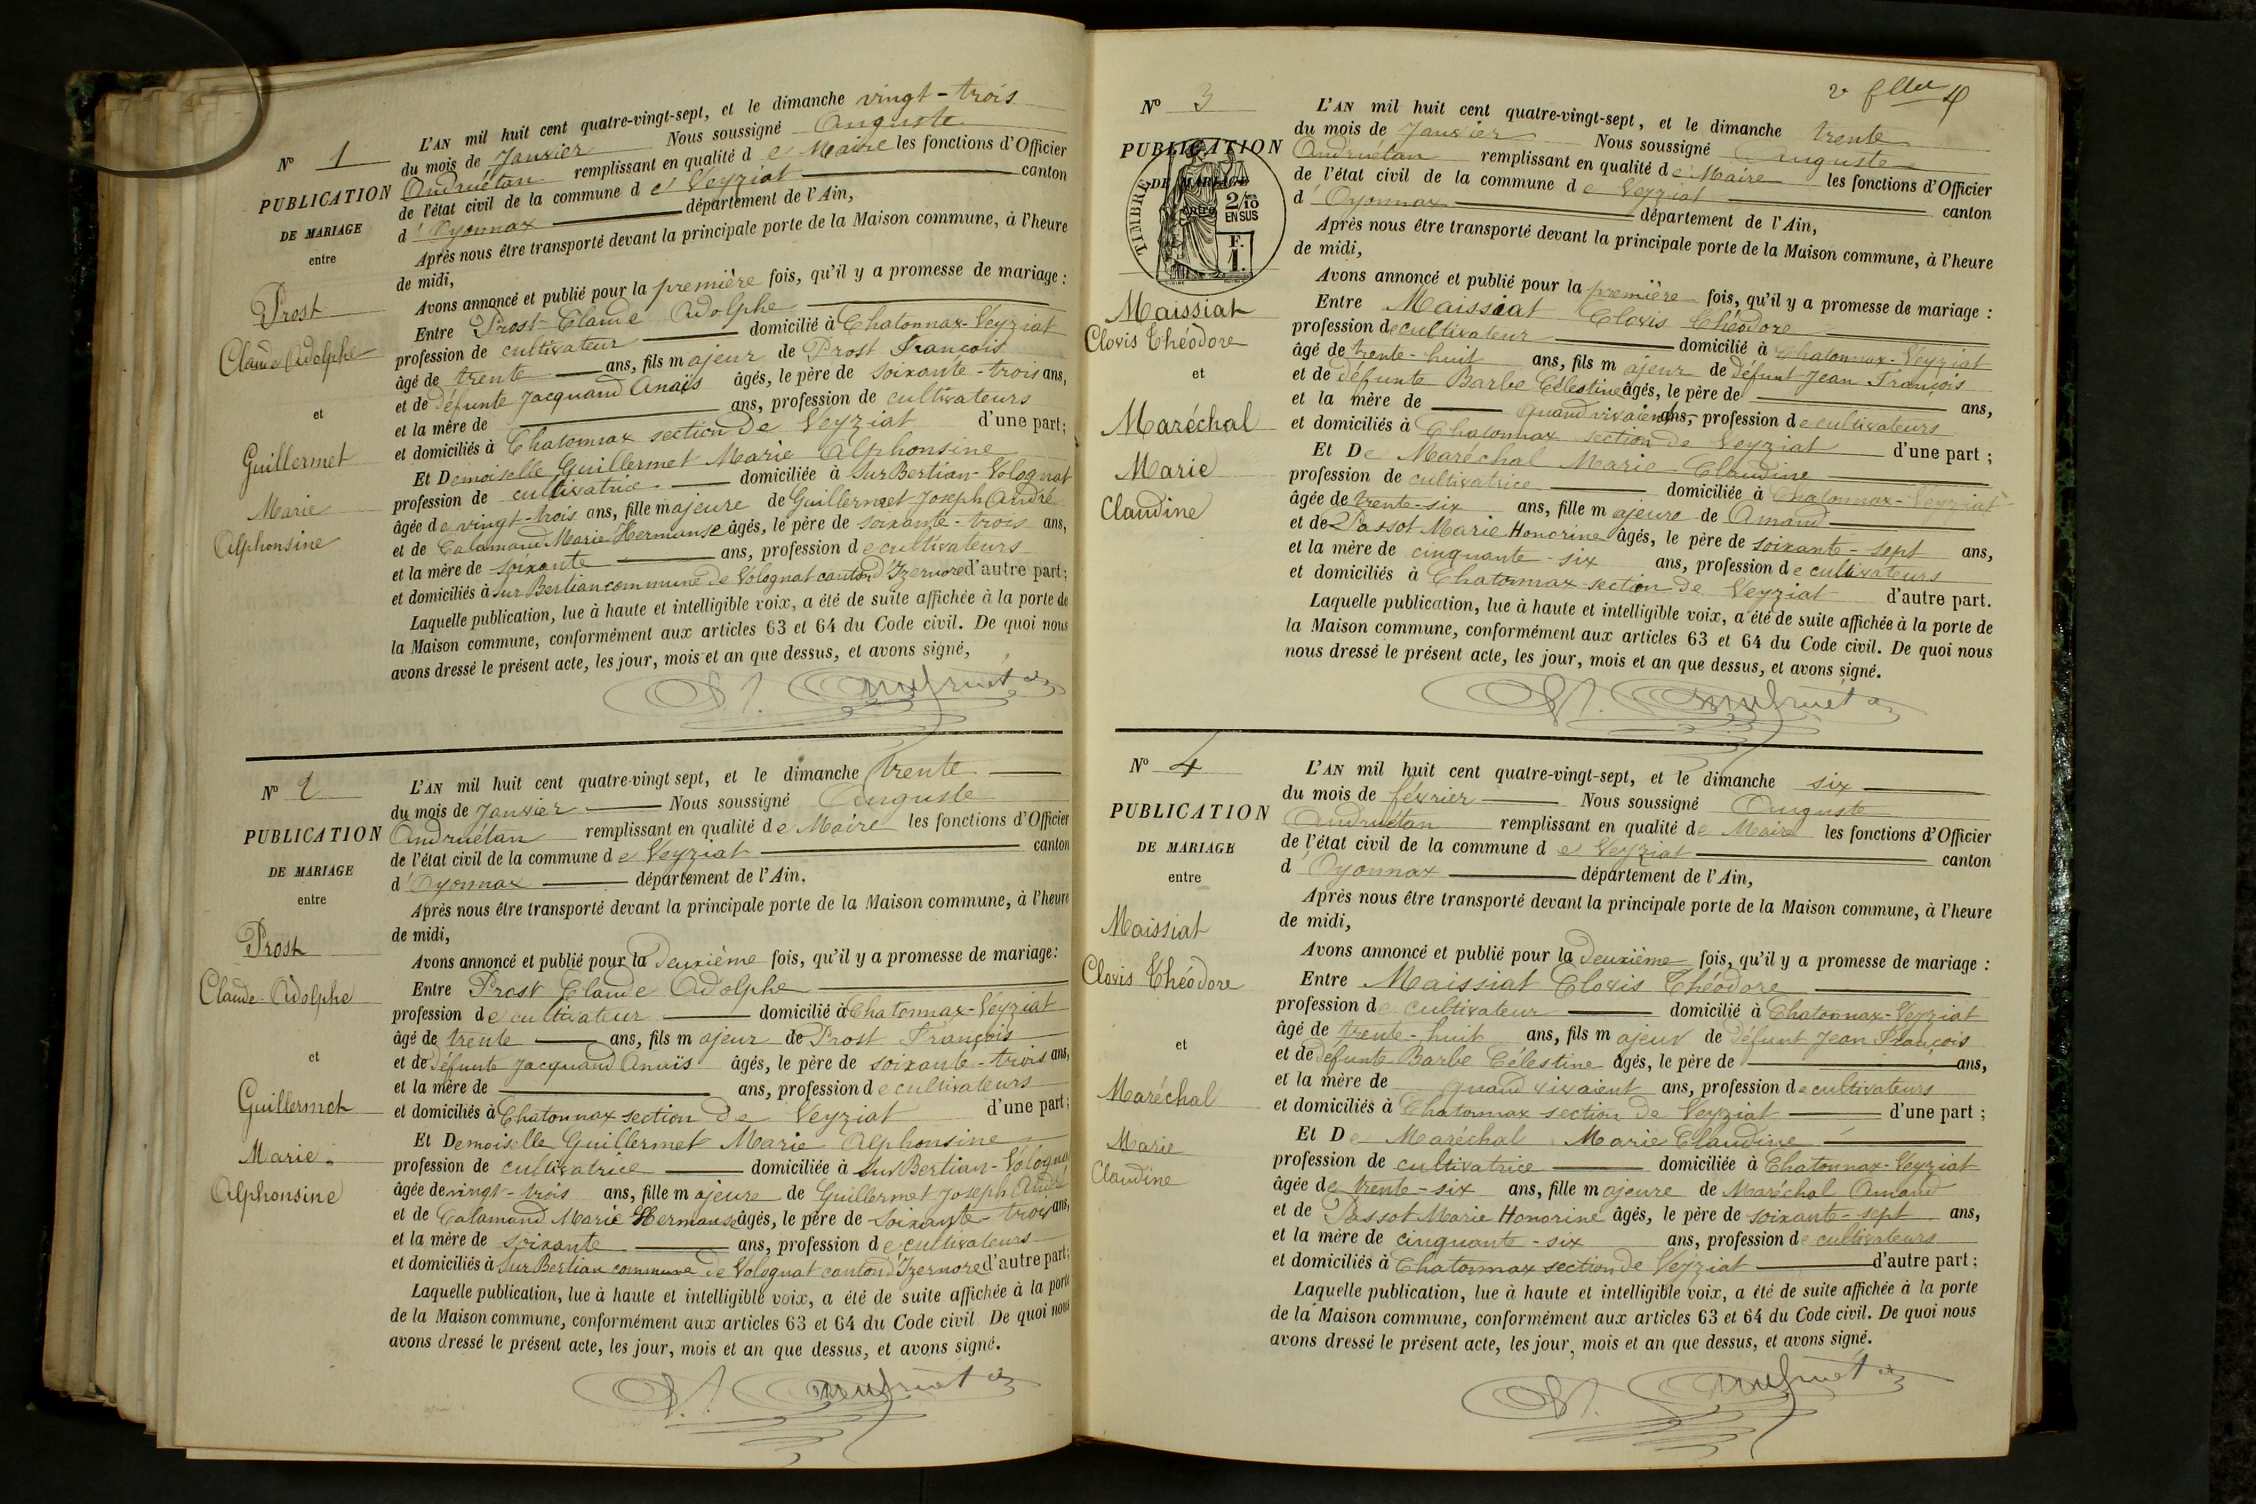 N° 1
PUBLICATION
DE MARIAGE
entre
Prost
Claude Adolphe
et
Guillermet
Marie
Alphonsine
L'AN mil huit cent quatre-vingt-sept, et le dimanche vingt-trois
du mois de Janvier Nous soussigné Auguste
Andruétan remplissant en qualité de Maire les fonctions d'Officier
de l'état civil de la commune de Veyziat canton
d'Oyonnax département de l'Ain,
Après nous être transporté devant la principale porte de la Maison commune, à l'heure
de midi,
Avons annoncé et publié pour la première fois, qu'il y a promesse de mariage :
Entre Prost Claude Adolphe
profession de cultivateur domicilié à Chatonnax-Veyziat
âgé de trente ans, fils majeur de Prost François
et de défunte Jacquand Anaïs âgés, le père de soixante-trois ans,
et la mère de ans, profession de cultivateurs
et domiciliés à Chatonnax section de Veyziat d'une part;
Et Demoiselle Guillermet Marie Alphonsine
profession de cultivatrice domiciliée à Sur Bertian-Volognat
âgée de vingt-trois ans, fille majeure de Guillermet Joseph André
et de Calamand Marie Hermanse âgés, le père de soixante-trois ans,
et la mère de soixante ans, profession de cultivateurs
et domiciliés à Sur Bertian commune de Volognat canton d'Izernore d'autre part;
Laquelle publication, lue à haute et intelligible voix, a été de suite affichée à la porte de
la Maison commune, conformément aux articles 63 et 64 du Code civil. De quoi nous
avons dressé le présent acte, les jour, mois et an que dessus, et avons signé,
N° 2
PUBLICATION
DE MARIAGE
entre
Prost
Claude Adolphe
et
Guillermet
Marie
Alphonsine
L'AN mil huit cent quatre-vingt sept, et le dimanche trente
du mois de Janvier Nous soussigné Auguste
Andruétan remplissant en qualité de Maire les fonctions d'Officier
de l'état civil de la commune de Veyziat canton
d'Oyonnax département de l'Ain.
Après nous être transporté devant la principale porte de la Maison commune, à l'heure
de midi,
Avons annoncé et publié pour la deuxième fois, qu'il y a promesse de mariage:
Entre Prost Claude Adolphe
profession de cultivateur domicilié à Chatonnax-Veyziat
âgé de trente ans, fils majeur de Prost François
et de défunte Jacquand Anaïs âgés, le père de soixante-trois ans,
et la mère de ans, profession de cultivateurs
et domiciliés à Chatonnax section de Veyziat d'une part;
Et Demoiselle Guillermet Marie Alphonsine
profession de cultivatrice domiciliée à Sur Bertian-Volognat
âgée de vingt-trois ans, fille majeure de Guillermet Joseph André
et de Calamand Marie Hermanse âgés, le père de soixante-trois ans,
et la mère de soixante ans, profession de cultivateurs
et domiciliés à Sur Bertian commune de Volognat canton d'Izernore d'autre part;
Laquelle publication, lue à haute et intelligible voix, a été de suite affichée à la porte
de la Maison commune, conformément aux articles 63 et 64 du Code civil. De quoi nous
avons dressé le présent acte, les jour, mois et an que dessus, et avons signé.
N° 3
PUBLICATION
DE MARIAGE
TIMBRE
2/10
EN SUS
F.
1.
Maissiat
Clovis Théodore
et
Maréchal
Marie
Claudine
L'AN mil huit cent quatre-vingt-sept, et le dimanche trente
du mois de Janvier Nous soussigné Auguste
Andruétan remplissant en qualité de Maire les fonctions d'Officier
de l'état civil de la commune de Veyziat canton
d'Oyonnax département de l'Ain,
Après nous être transporté devant la principale porte de la Maison commune, à l'heure
de midi,
Avons annoncé et publié pour la première fois, qu'il y a promesse de mariage :
Entre Maissiat Clovis Théodore
profession de cultivateur domicilié à Chatonnax-Veyziat
âgé de trente-huit ans, fils majeur de défunt Jean François
et de défunte Barbe Célestine âgés, le père de ans,
et la mère de quand vivaient ans, profession de cultivateurs
et domiciliés à Chatonnax section de Veyziat d'une part ;
Et De Maréchal Marie Claudine
profession de cultivatrice domiciliée à Chatonnax-Veyziat
âgée de trente-six ans, fille majeure de Amand
et de Passot Marie Honorine âgés, le père de soixante-sept ans,
et la mère de cinquante-six ans, profession de cultivateurs
et domiciliés à Chatonnax section de Veyziat d'autre part.
Laquelle publication, lue à haute et intelligible voix, a été de suite affichée à la porte de
la Maison commune, conformément aux articles 63 et 64 du Code civil. De quoi nous
nous dressé le présent acte, les jour, mois et an que dessus, et avons signé.
N° 4
PUBLICATION
DE MARIAGE
entre
Maissiat
Clovis Théodore
et
Maréchal
Marie
Claudine
L'AN mil huit cent quatre-vingt-sept, et le dimanche six
du mois de février Nous soussigné Auguste
Andruétan remplissant en qualité de Maire les fonctions d'Officier
de l'état civil de la commune de Veyziat canton
d'Oyonnax département de l'Ain,
Après nous être transporté devant la principale porte de la Maison commune, à l'heure
de midi,
Avons annoncé et publié pour la deuxième fois, qu'il y a promesse de mariage :
Entre Maissiat Clovis Théodore
profession de cultivateur domicilié à Chatonnax-Veyziat
âgé de trente-huit ans, fils majeur de défunt Jean François
et de défunte Barbe Célestine âgés, le père de ans,
et la mère de quand vivaient ans, profession de cultivateurs
et domiciliés à Chatonnax section de Veyziat d'une part ;
Et De Maréchal Marie Claudine
profession de cultivatrice domiciliée à Chatonnax-Veyziat
âgée de trente-six ans, fille majeure de Maréchal Amand
et de Passot Marie Honorine âgés, le père de soixante-sept ans,
et la mère de cinquante-six ans, profession de cultivateurs
et domiciliés à Chatonnax section de Veyziat d'autre part ;
Laquelle publication, lue à haute et intelligible voix, a été de suite affichée à la porte
de la Maison commune, conformément aux articles 63 et 64 du Code civil. De quoi nous
avons dressé le présent acte, les jour, mois et an que dessus, et avons signé.